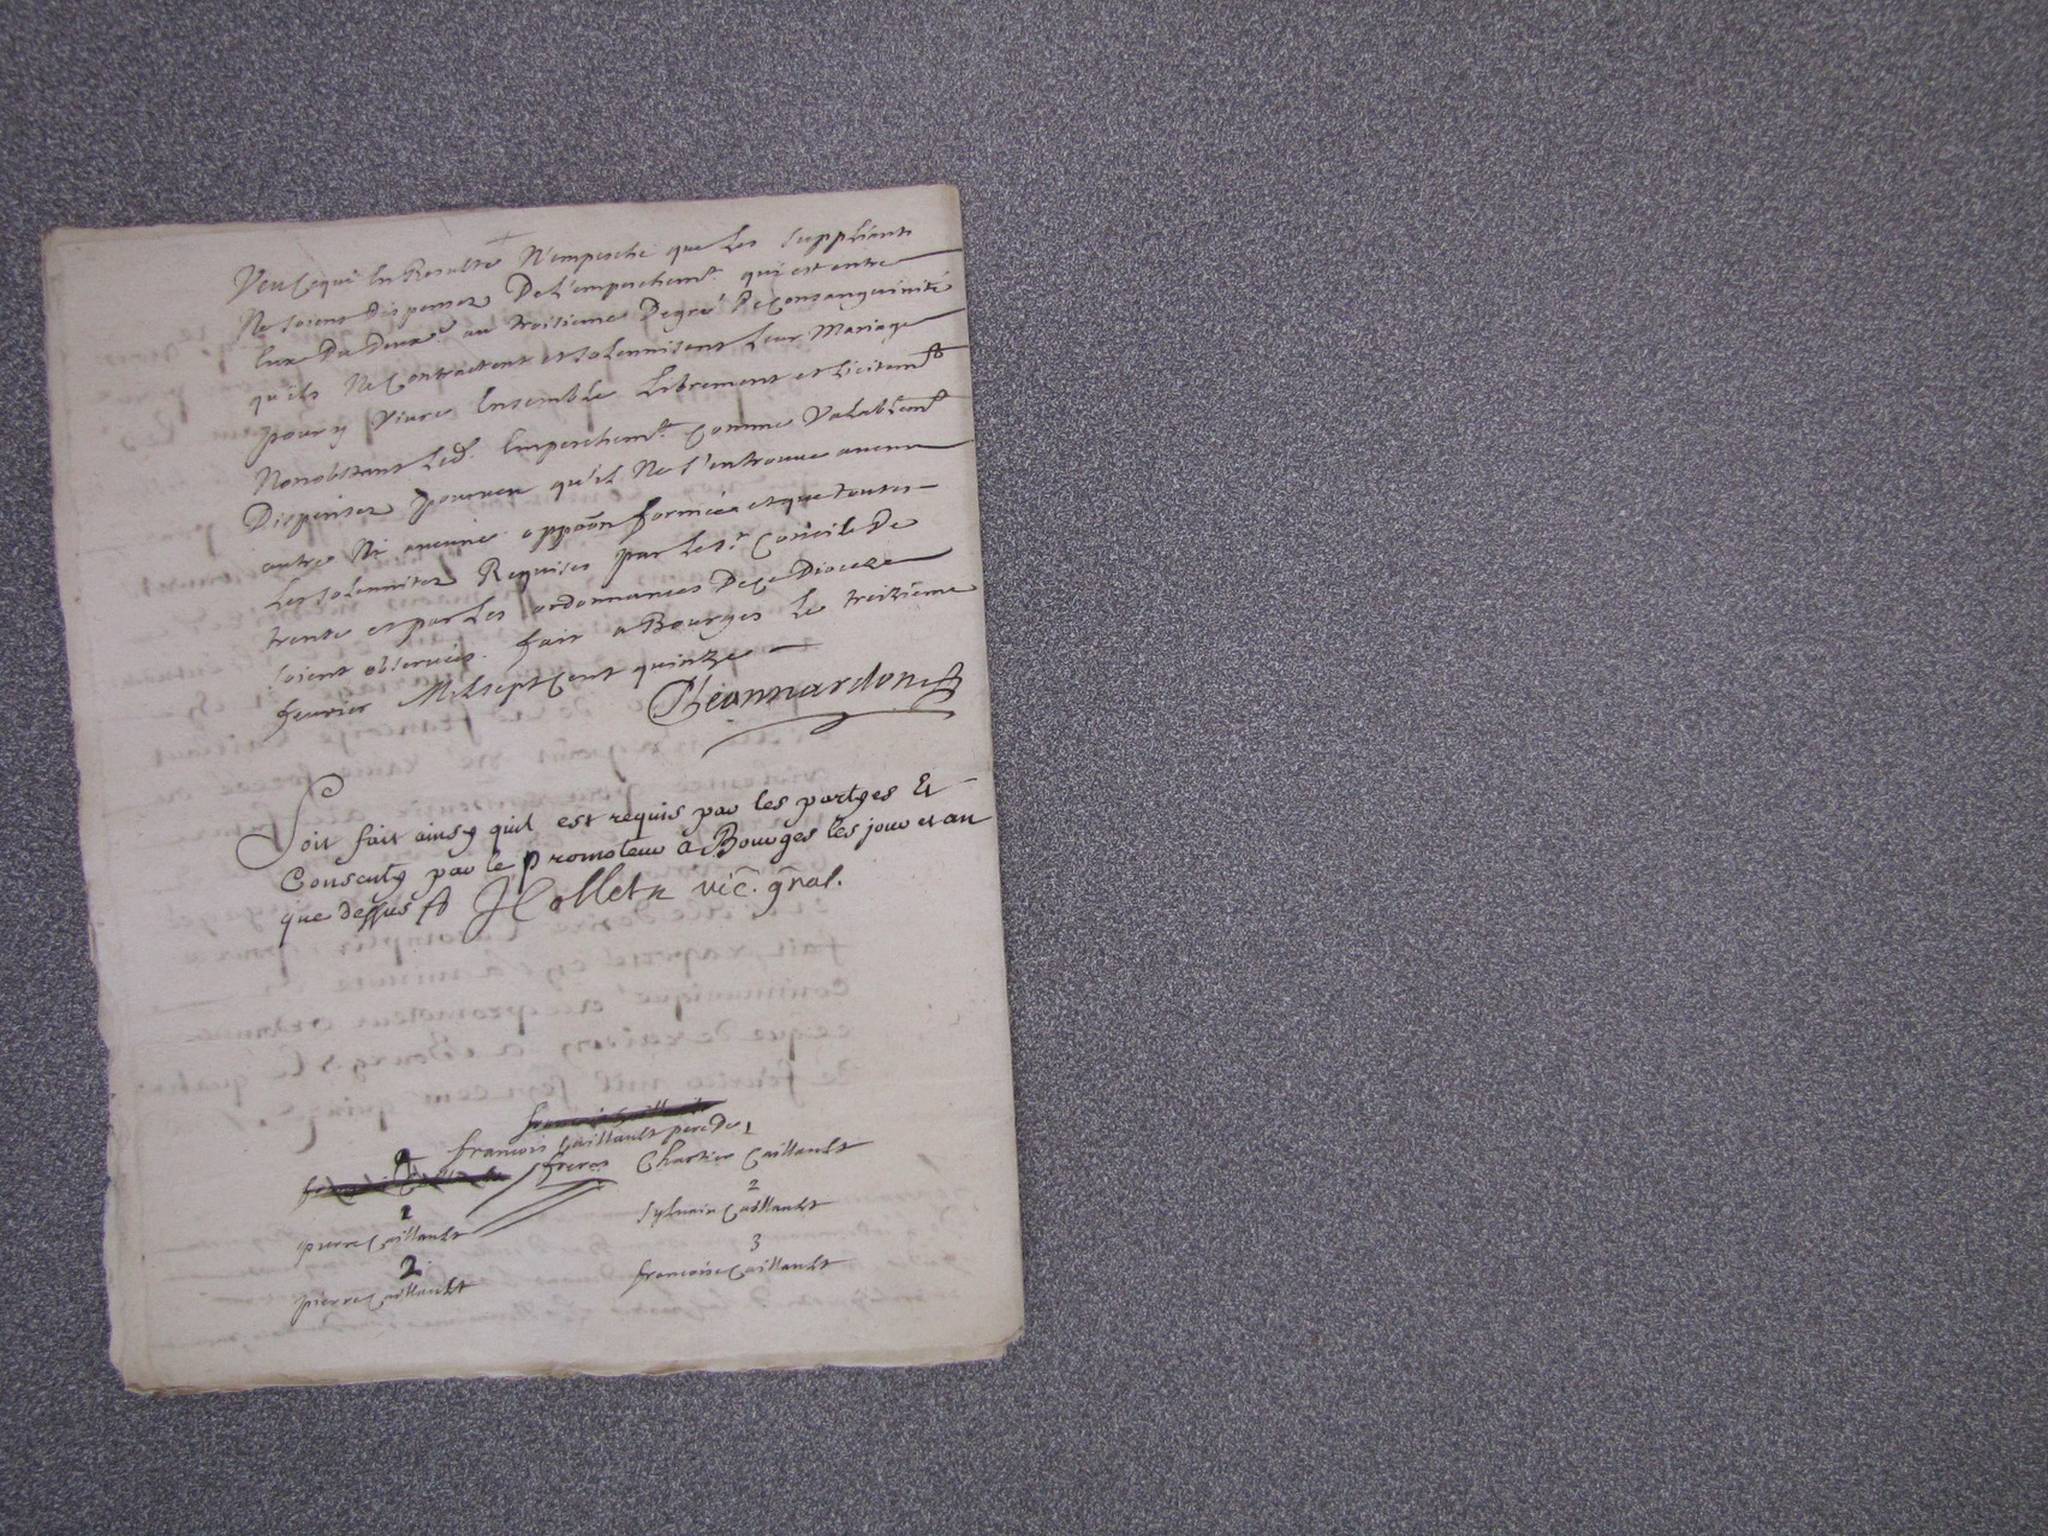 Veu ce qui En Resulte N'empesche que les suppliants
Ne soient dispensez De L'empeschemt. qui est entre
Eux Du Deuxe. au troisieme Degré De Consanguinité
qu'ils Ne Contractent et solennisent Leur Mariage
pour y Vivre Ensemble Librement et Licitemt
Nonobstant Led. Empeschemt. Comme Valablemt
Dispensez pourveu qu'il Ne s'en trouve aucun
autre Ni aucune oppoõn formée et que toutes
Les solennitez Requises par le st. Concile De
trente et par Les ordonnances De ce Dioceze
soient observées. fait a Bourges Le treizieme
fevrier Mil sept Cent quinze
Soit fait ainsy quil est requis par les partyes Et
Consenty par le promoteur à Bourges les jour et an
que dessus JCollet vic. gñal.
francois Caillault pere De 1
freres Chartier Caillault
1 2
pierre Caillault sylvain Caillault
2 3
pierre Caillault francoise Caillault